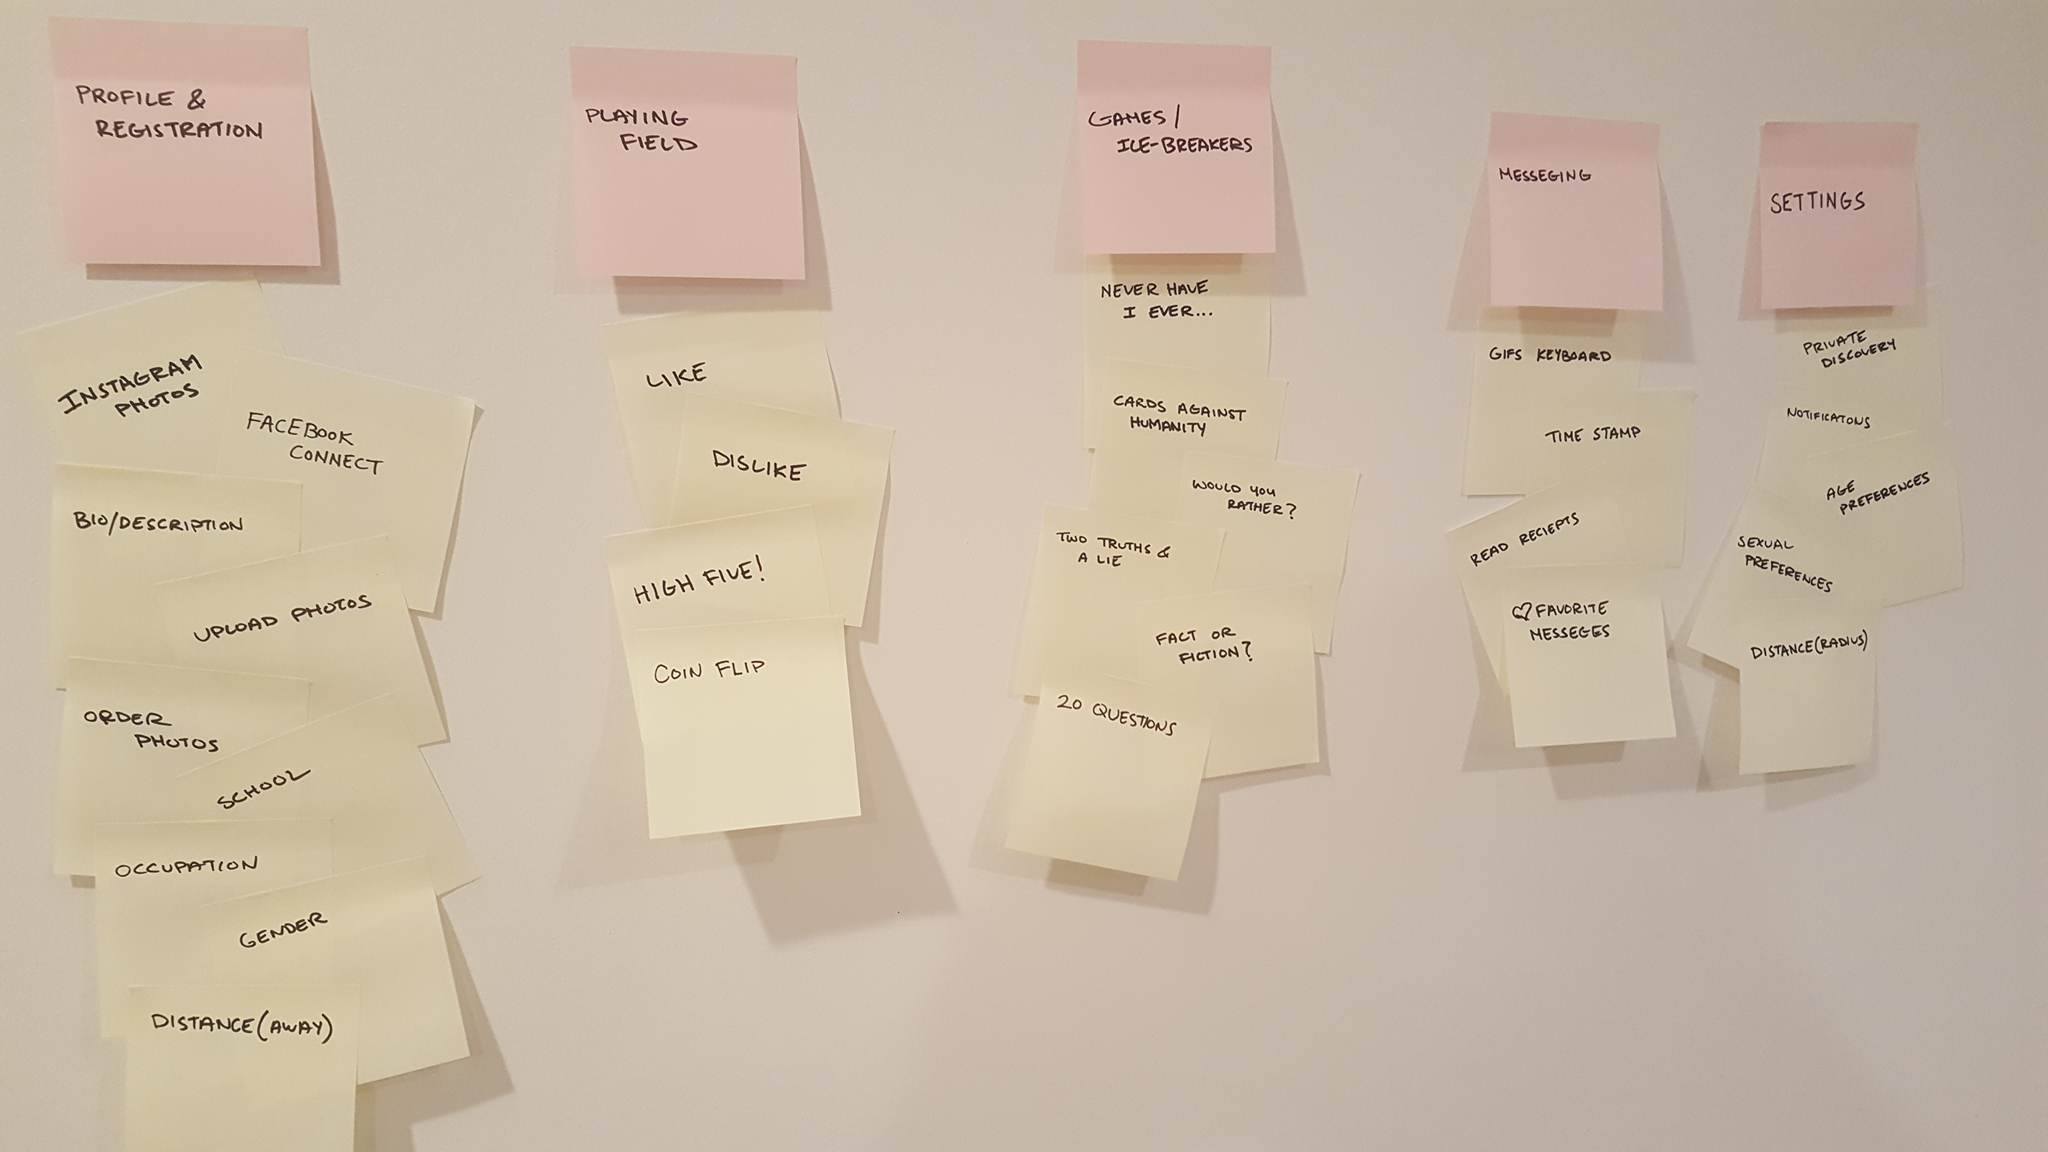 PROFILE &
REGISTRATION
INSTAGRAM
PHOTOS
FACEBOOK
CONNECT
BIO/DESCRIPTION
UPLOAD PHOTOS
ORDER
PHOTOS
SCHOOL
OCCUPATION
GENDER
DISTANCE(AWAY)
PLAYING
FIELD
LIKE
DISLIKE
HIGH FIVE!
COIN FLIP
GAMES/
ICE-BREAKERS
NEVER HAVE
I EVER...
CARDS AGAINST
HUMANITY
WOULD YOU
RATHER?
TWO TRUTHS &
A LIE
FACT OR
FICTION?
20 QUESTIONS
MESSEGING
GIFS KEYBOARD
TIME STAMP
READ RECIEPTS
♡ FAVORITE
MESSEGES
SETTINGS
PRIVATE
DISCOVERY
NOTIFICATONS
AGE
PREFERENCES
SEXUAL
PREFERENCES
DISTANCE(RADIUS)